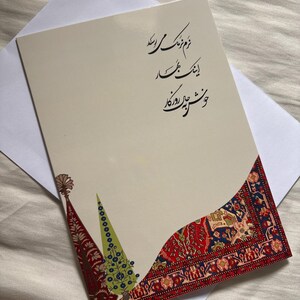 نرم نرمک می‌رسد
اینک بهار
خوش بحال روزگار